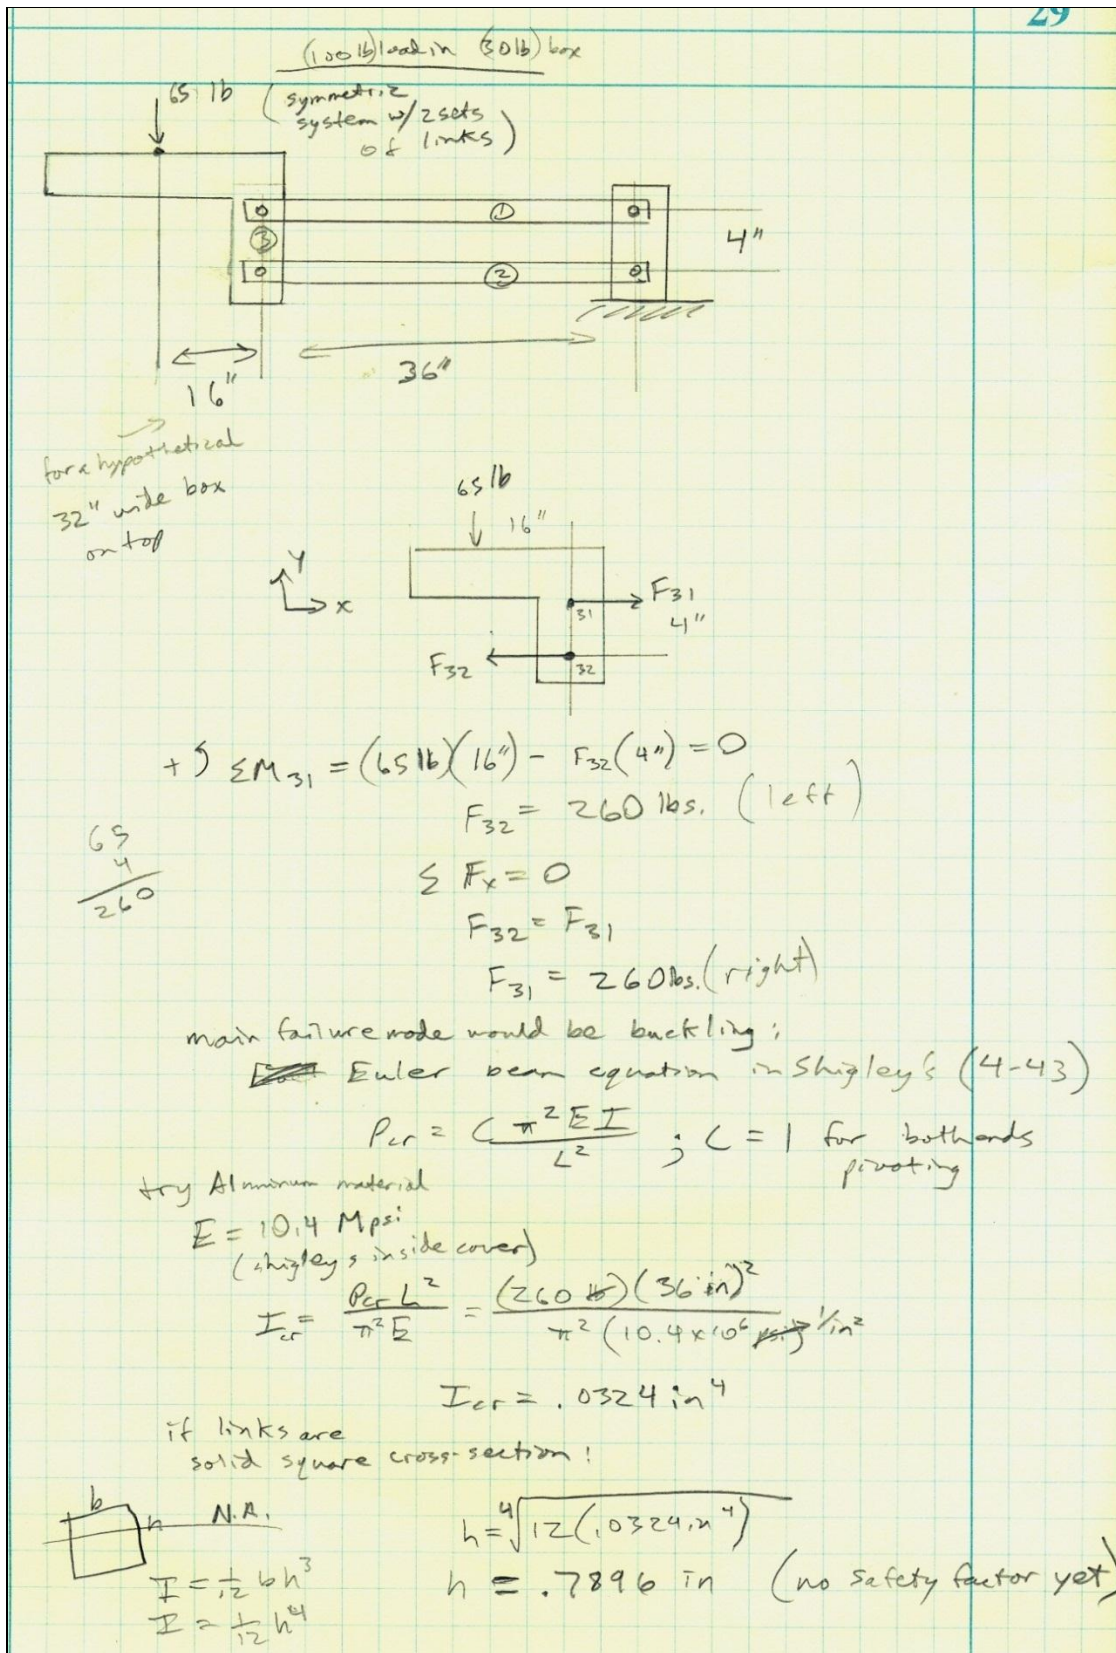 29
(100 lb) load in (30 lb) box
65 lb
(symmetric
system w/ 2 sets
of links)
①
③
②
4"
16"
36"
for a hypothetical
32" wide box
on top
65 lb
16"
y
x
F31
31
4"
F32
32
+ ΣM31 = (65 lb)(16") - F32(4") = 0
F32 = 260 lbs. (left)
65
4
260
Σ Fx = 0
F32 = F31
F31 = 260 lbs. (right)
main failure mode would be buckling;
Euler beam equation in Shigley's (4-43)
Pcr = C π² E I / L² ; C = 1 for both ends
pivoting
try Aluminum material
E = 10.4 Mpsi
(shigley's inside cover)
Icr = Pcr L² / π² E = (260 lb)(36 in)² / π² (10.4 x 10⁶ psi) 1/in²
Icr = .0324 in⁴
if links are
solid square cross-section:
b
h
N.A.
h = ⁴√12(.0324 in⁴)
I = 1/12 bh³
h = .7896 in (no safety factor yet)
I = 1/12 h⁴